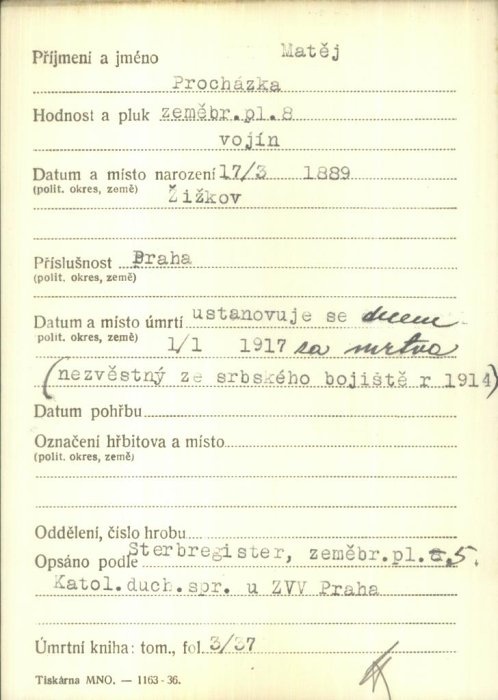 Příjmení a jméno Matěj
Procházka
Hodnost a pluk zeměbr.pl.8
vojín
Datum a místo narození 17/3 1889
(polit. okres, země) Žižkov
Příslušnost Praha
(polit. okres, země)
Datum a místo úmrtí ustanovuje se dnem
polit. okres, země) 1/1 1917 za mrtva
(nezvěstný ze srbského bojiště r 1914)
Datum pohřbu
Označení hřbitova a místo
(polit. okres, země)
Oddělení, číslo hrobu
Opsáno podle Sterbregister, zeměbr.pl. 5.
Katol.duch.spr. u ZVV Praha
Úmrtní kniha: tom., fol. 3/37
Tiskárna MNO. — 1163-36.